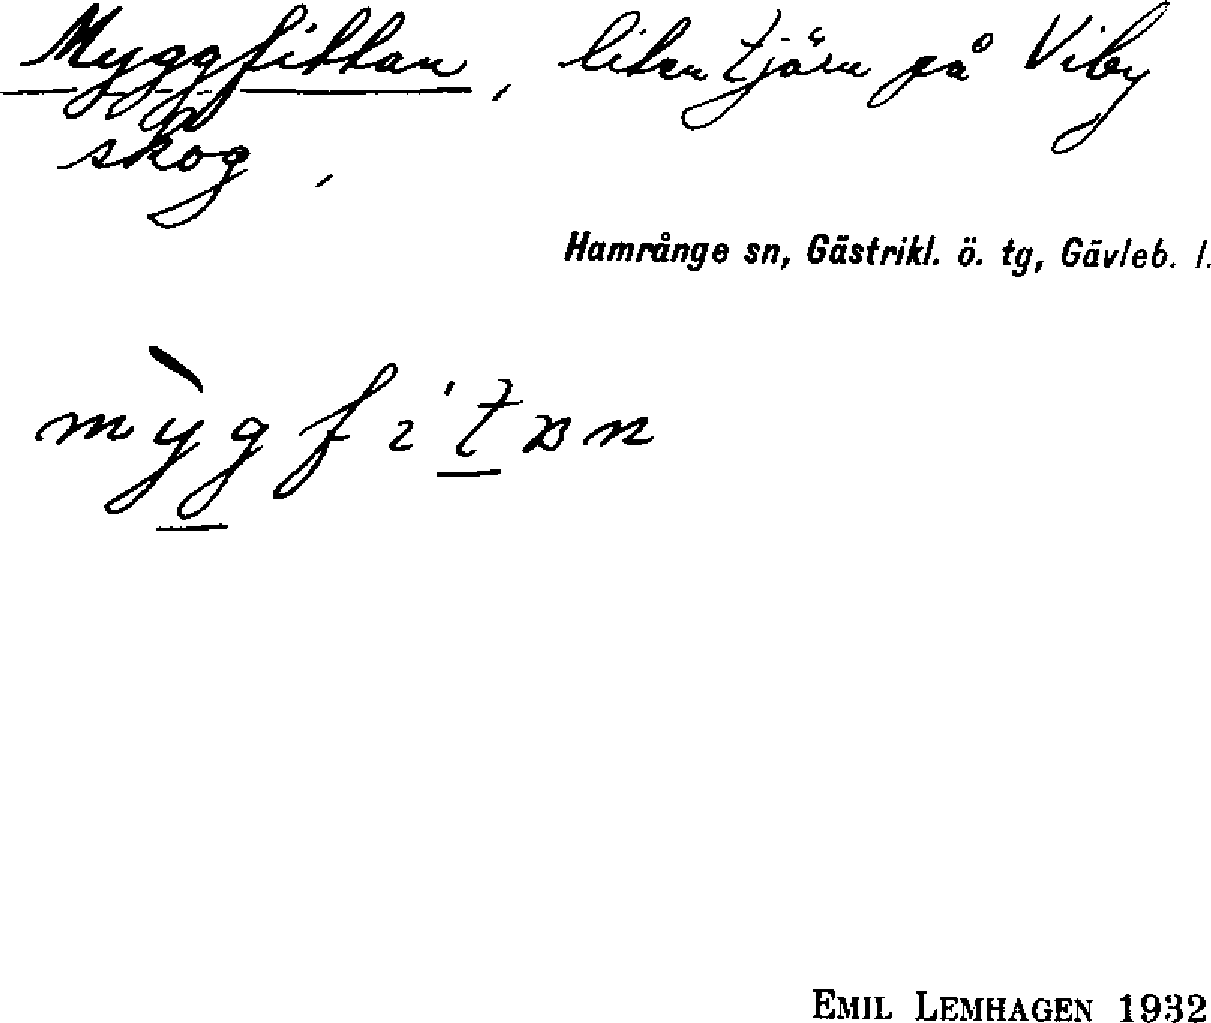 Myggfittan, liten tjärn på Viby
skog,
Hamrånge sn, Gästrikl. ö. tg, Gävleb. l.
mỳgfi'tɒn
EMIL LEMHAGEN 1932